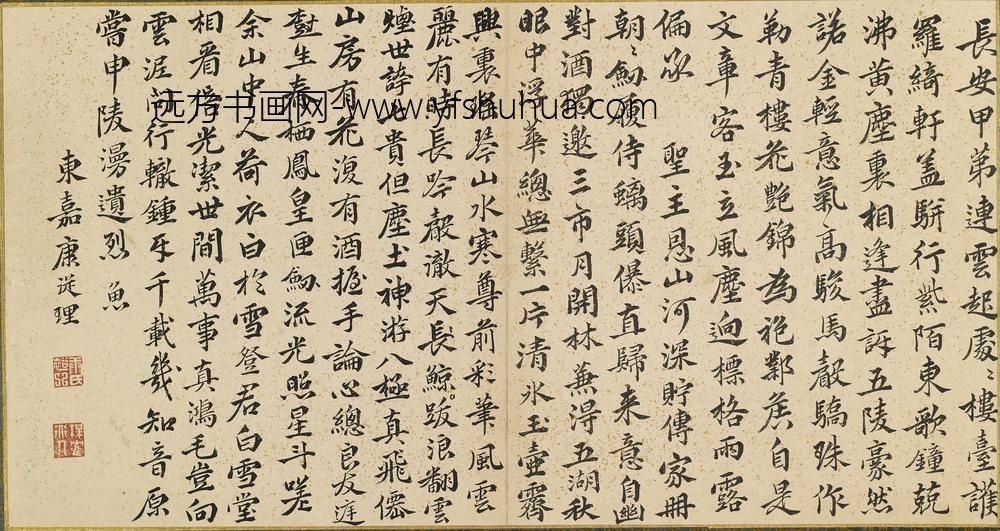 長安甲第連雲起處〻樓臺護
羅綺軒蓋駢行紫陌東歌鐘競
沸黃塵裏相逢盡訴五陵豪然
諾金輕意氣高駿馬嚴驕殊作
勒青樓花艷錦為袍鄴侯自是
文章客玉立風塵迥標格雨露
偏承聖主恩山河深貯傳家冊
朝〻劒履侍螭頭傑直歸來意自幽
對酒獨邀三市月開林兼得五湖秋
眼中浮華總無繫一片清冰玉壺霽
興裏絃琴山水寒尊前彩華風雲
麗有時長吟聲澈天長鯨跋浪翻雲
煙世諱貴但塵土神游八極真飛僊
山房有花復有酒握手論心總良友莛
生素栖鳳皇匣劒流光照星斗嗟
余山中人荷衣白於雪登君白雪堂
相看光潔世間萬事真鴻毛豈向
雲泥行轍鍾牙千載幾知音原
嘗申陵漫遺烈
東嘉康從理
远方书画网-www.yfshuhua.com